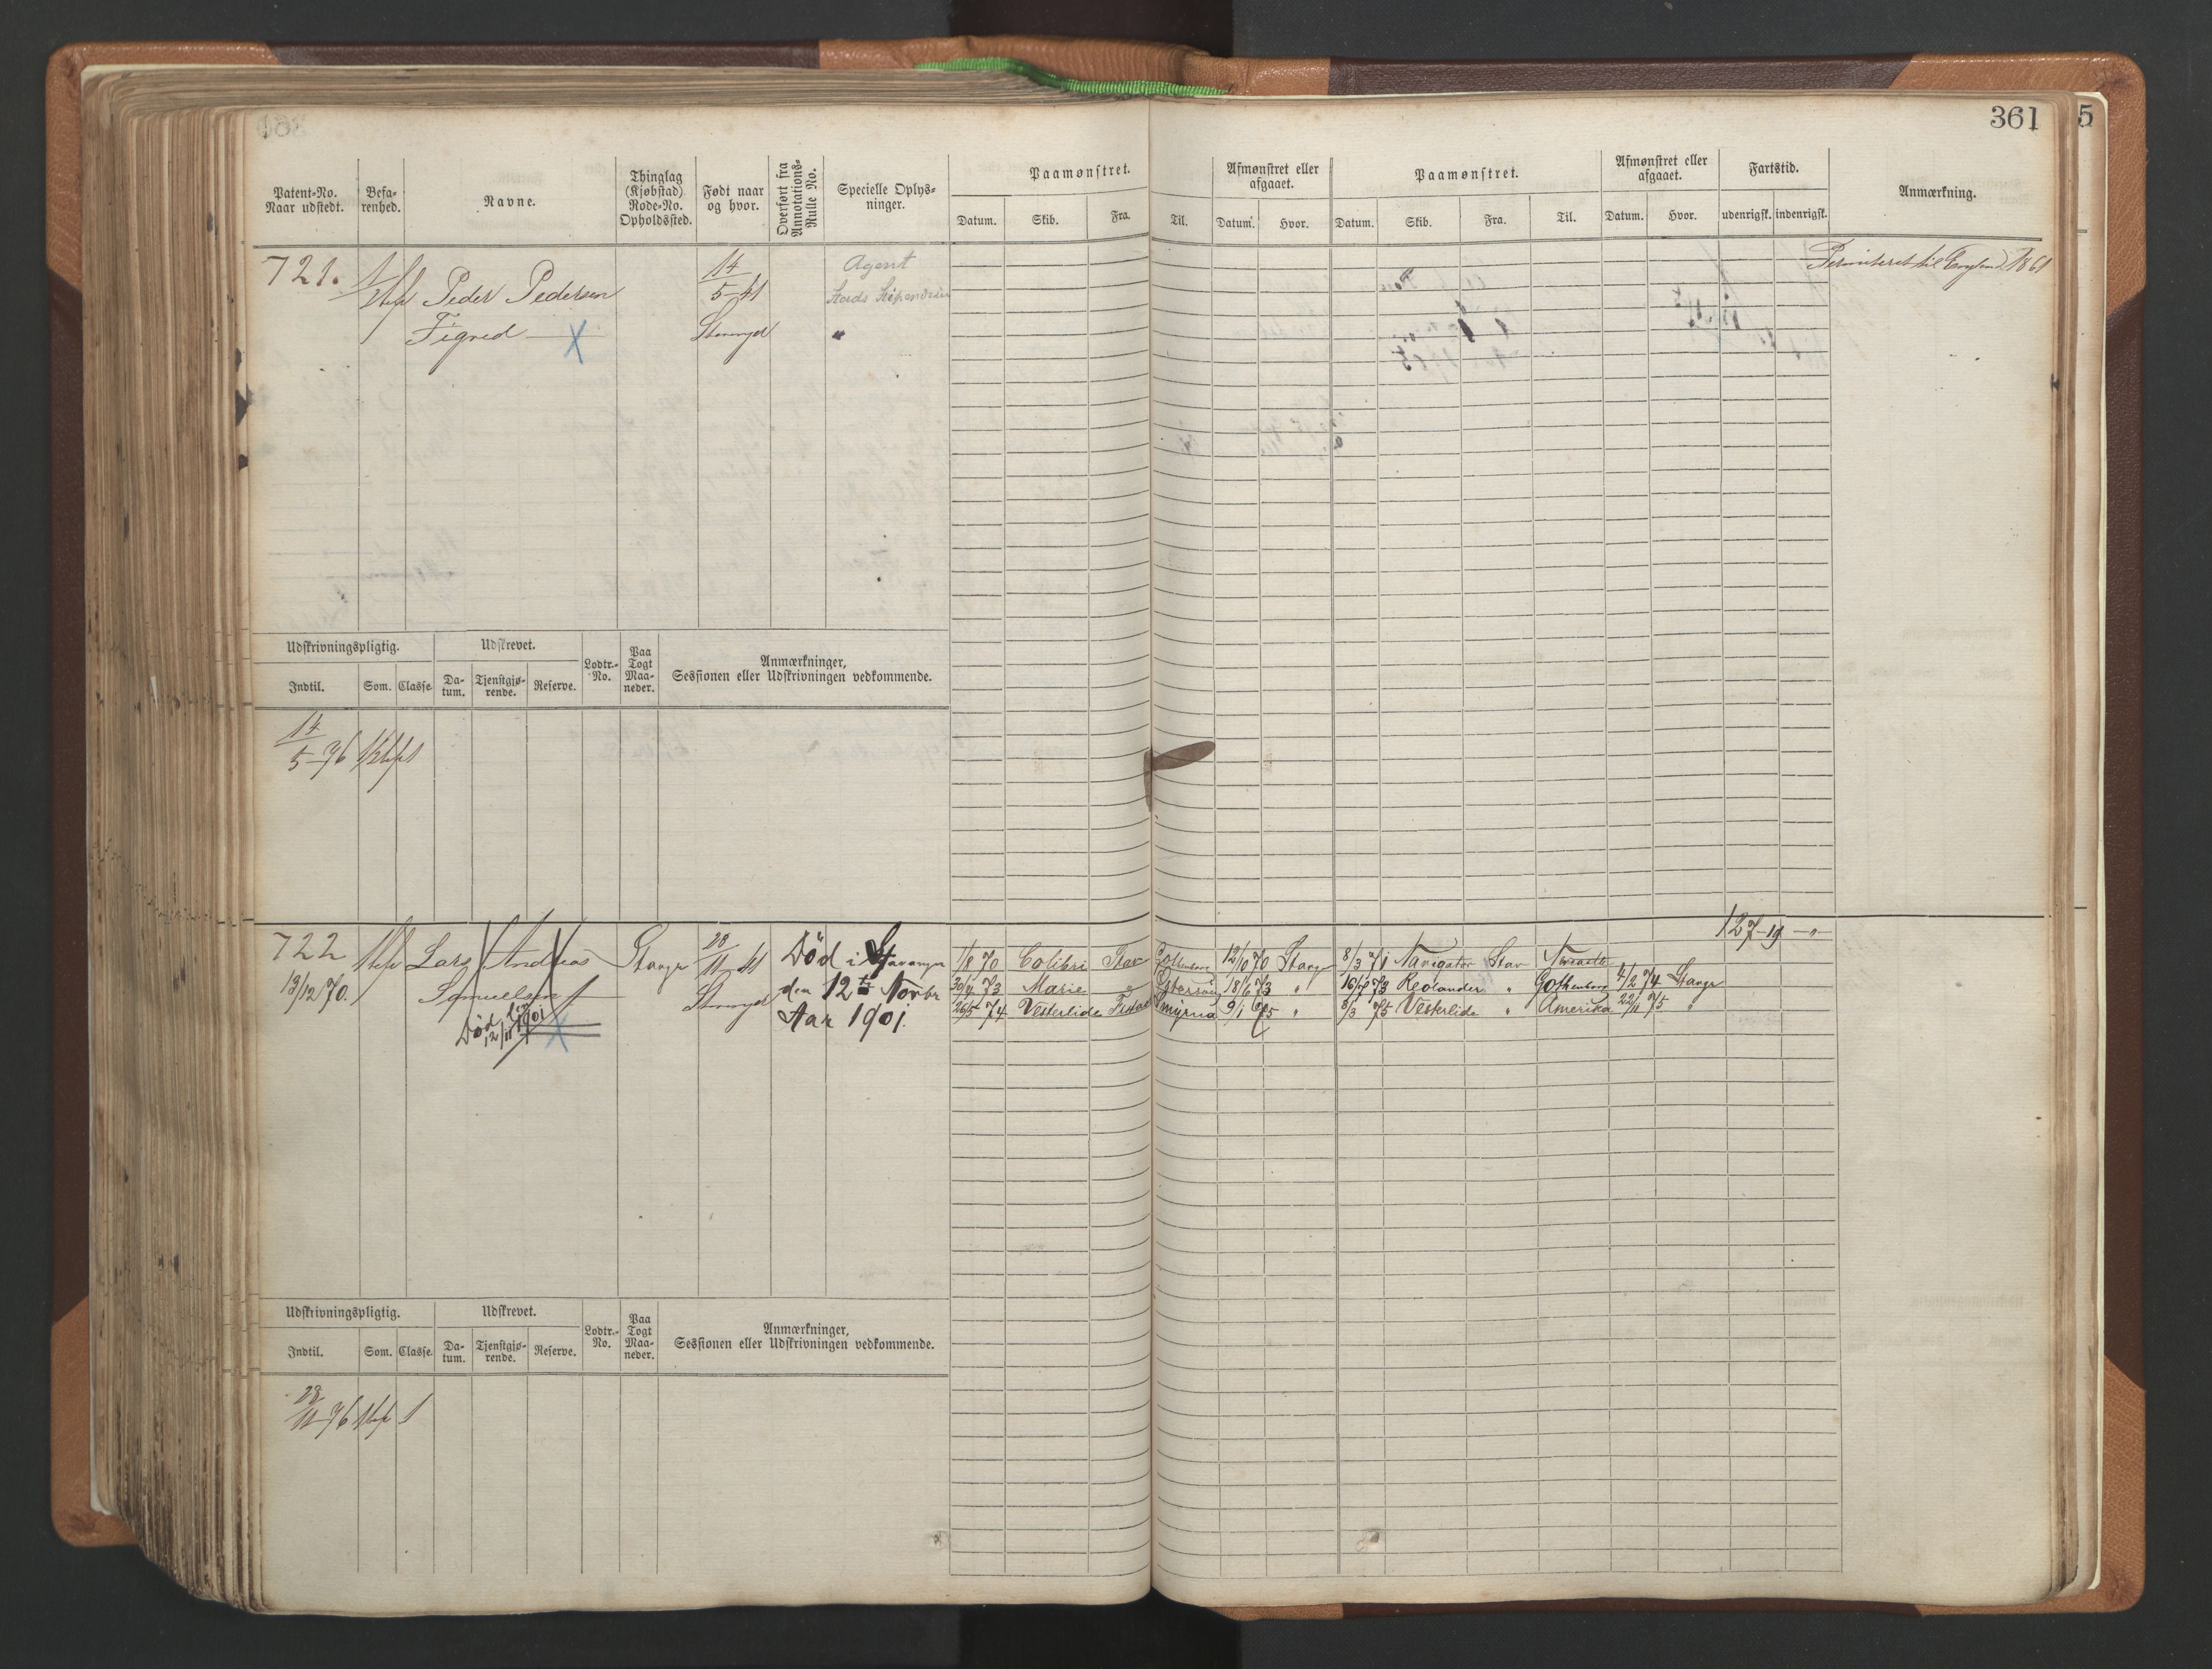 361
5
Patent-No.
Naar udstedt.
Befa-
renhed.
Navne.
Thinglag
(Kjøbstad)
Rode-No.
Opholdssted.
Født naar
og hvor.
Overført fra
Annotations-
Rulle No.
Specielle Oplys-
ninger.
Paamønstret.
Datum. Skib. Fra. Til.
Afmønstret eller
afgaaet.
Datum. Hvor.
Paamønstret.
Datum. Skib. Fra. Til.
Afmønstret eller
afgaaet.
Datum. Hvor.
Fartstid.
udenrigsk. indenrigsk.
Anmærkning.
721.
Peder Pedersen
Figved
X
14
5-41
Agent
til England 1861
Udskrivningspligtig.
Indtil. Som. Classe
Udskrevet.
Da-
tum.
Tjenstgjø-
rende.
Reserve.
Lodtr.-
No.
Paa
Togt
Maa-
neder.
Anmærkninger,
Sessionen eller Udskrivningen vedkommende.
14
5-76
722
13/12 70.
Lars Andreas
Samuelsen
Død
12/11 1901
X
Stavgr
28
11 41
Død i Stavanger
den 12te Novbr
Aar 1901.
127-19 -"-
1/8 70 Colibri Stav Gothenborg 12/10 70 Stavgr 8/3 71 Navigator Stav
30/4 73 Marie " Østersøen 18/6 73 " 16/7 73 Reolander " Gothenborg 4/2 74 Stavgr
26/5 74 Vesterlide Smyrna 9/1 75 " 8/3 75 Vesterlide " Amerika 22/11 75 "
Udskrivningspligtig.
Indtil. Som. Classe.
Udskrevet.
Da-
tum.
Tjenstgjø-
rende.
Reserve.
Lodtr.-
No.
Paa
Togt
Maa-
neder.
Anmærkninger,
Sessionen eller Udskrivningen vedkommende.
28
11-76 1